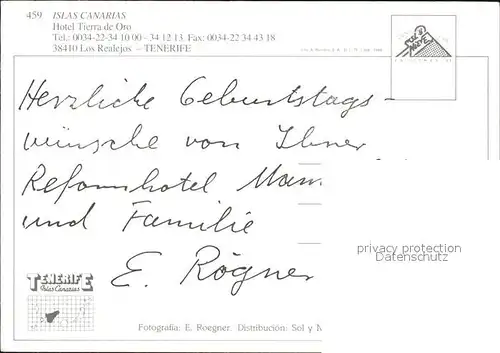 459 ISLAS CANARIAS
Hotel Tierra de Oro
Tel.: 0034-22-34 10 00 - 34 12 13. Fax: 0034-22 34 43 18
38410 Los Realejos - TENERIFE
Herzliche Geburtstags-
wünsche von Ihrer
Reformhotel
und Familie
E. Rögner
privacy protection
Datenschutz
TENERIFE
Islas Canarias
Fotografía: E. Roegner. Distribución: Sol y